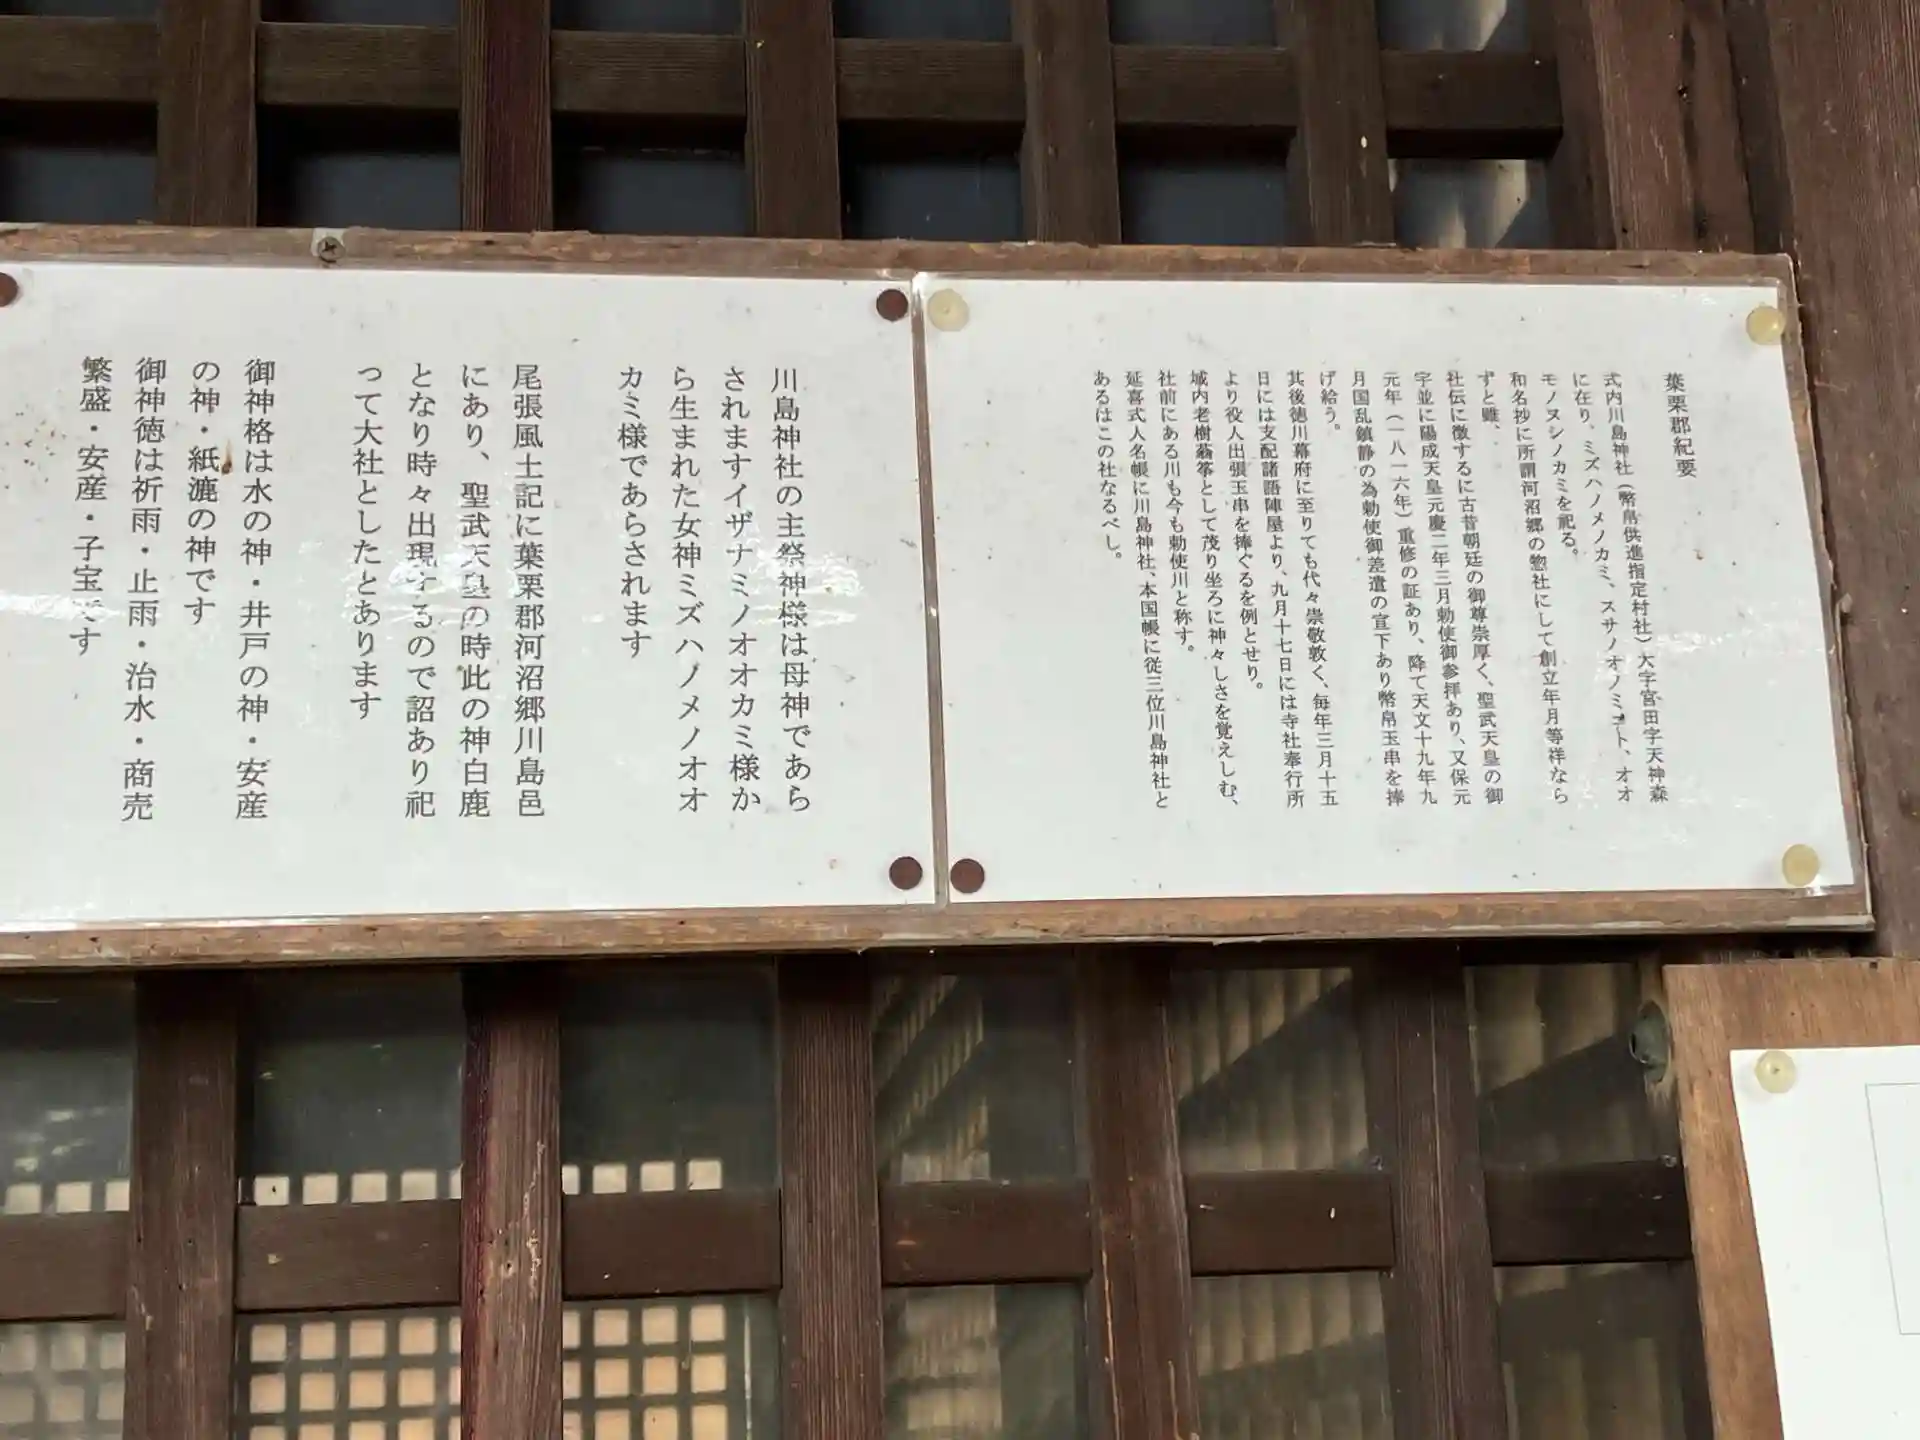 葉栗郡紀要
式内川島神社（幣帛供進指定村社）大字宮田字天神森
に在り、ミズハノメノカミ、スサノオノミコト、オオ
モノヌシノカミを祀る。
和名抄に所謂河沼郷の惣社にして創立年月等祥なら
ずと雖、
社伝に徴するに古昔朝廷の御尊崇厚く、聖武天皇の御
字並に陽成天皇元慶二年三月勅使御参拝あり、又保元
元年（一八一六年）重修の証あり、降て天文十九年九
月国乱鎮静の為勅使御差遣の宣下あり幣帛玉串を捧
げ給う。
其後徳川幕府に至りても代々崇敬敦く、毎年三月十五
日には支配諸語陣屋より、九月十七日には寺社奉行所
より役人出張玉串を捧ぐるを例とせり。
域内老樹蓊として茂り坐ろに神々しさを覚えしむ、
社前にある川も今も勅使川と称す。
延喜式人名帳に川島神社、本国帳に従三位川島神社と
あるはこの社なるべし。
川島神社の主祭神様は母神であら
されますイザナミノオオカミ様か
ら生まれた女神ミズハノメノオオ
カミ様であらされます
尾張風土記に葉栗郡河沼郷川島邑
にあり、聖武天皇の時此の神白鹿
となり時々出現するので詔あり祀
って大社としたとあります
御神格は水の神・井戸の神・安産
の神・紙漉の神です
御神徳は祈雨・止雨・治水・商売
繁盛・安産・子宝です